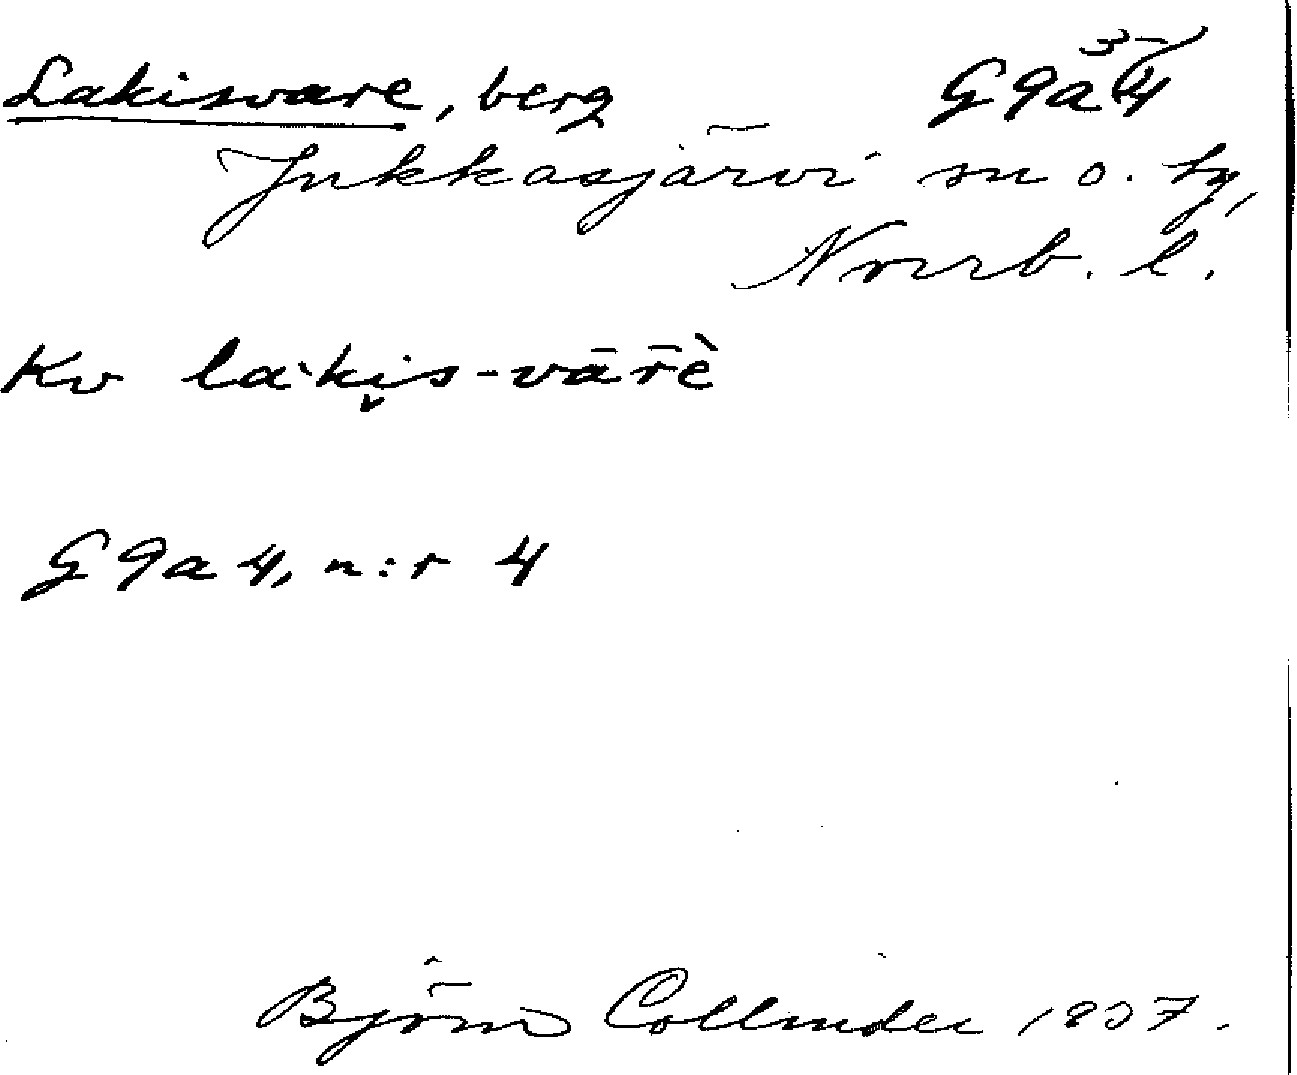 Lakisvare, berg G9a 3/4
Jukkasjärvi sn o. ty,
Norrb. l.
Kv la`ki̬s-vār̄è
G9a4, n:r 4
Björn Collinder 1937.